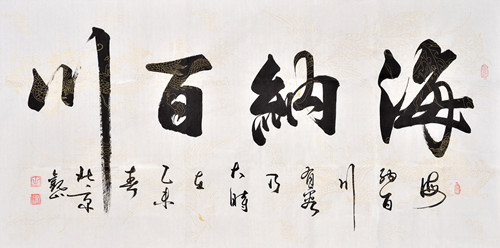 海納百川
海
納百
川
有容
乃
大時
在
乙未
春
北京